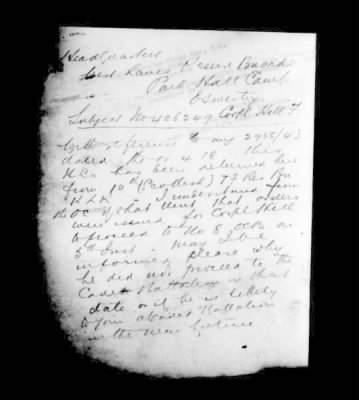 Headquarters
West Lancs Reserve Brigade
Park Hall Camp
Oswestry
Subject No 426249 Corpl Hell
With reference to my 2988/43
dated the 10.4.18 This
NCO has been returned here
from 10th (Scottish) Res Bn
KLR. I understand from
the OC of that Unit that orders
were issued for Corpl Hell
to proceed to No 8 OCB on
5th Inst. May I be
informed please why
he did not proceed to the
Cadet Battalion on that
date or if he is likely
to join a Cadet Battalion
in the near future